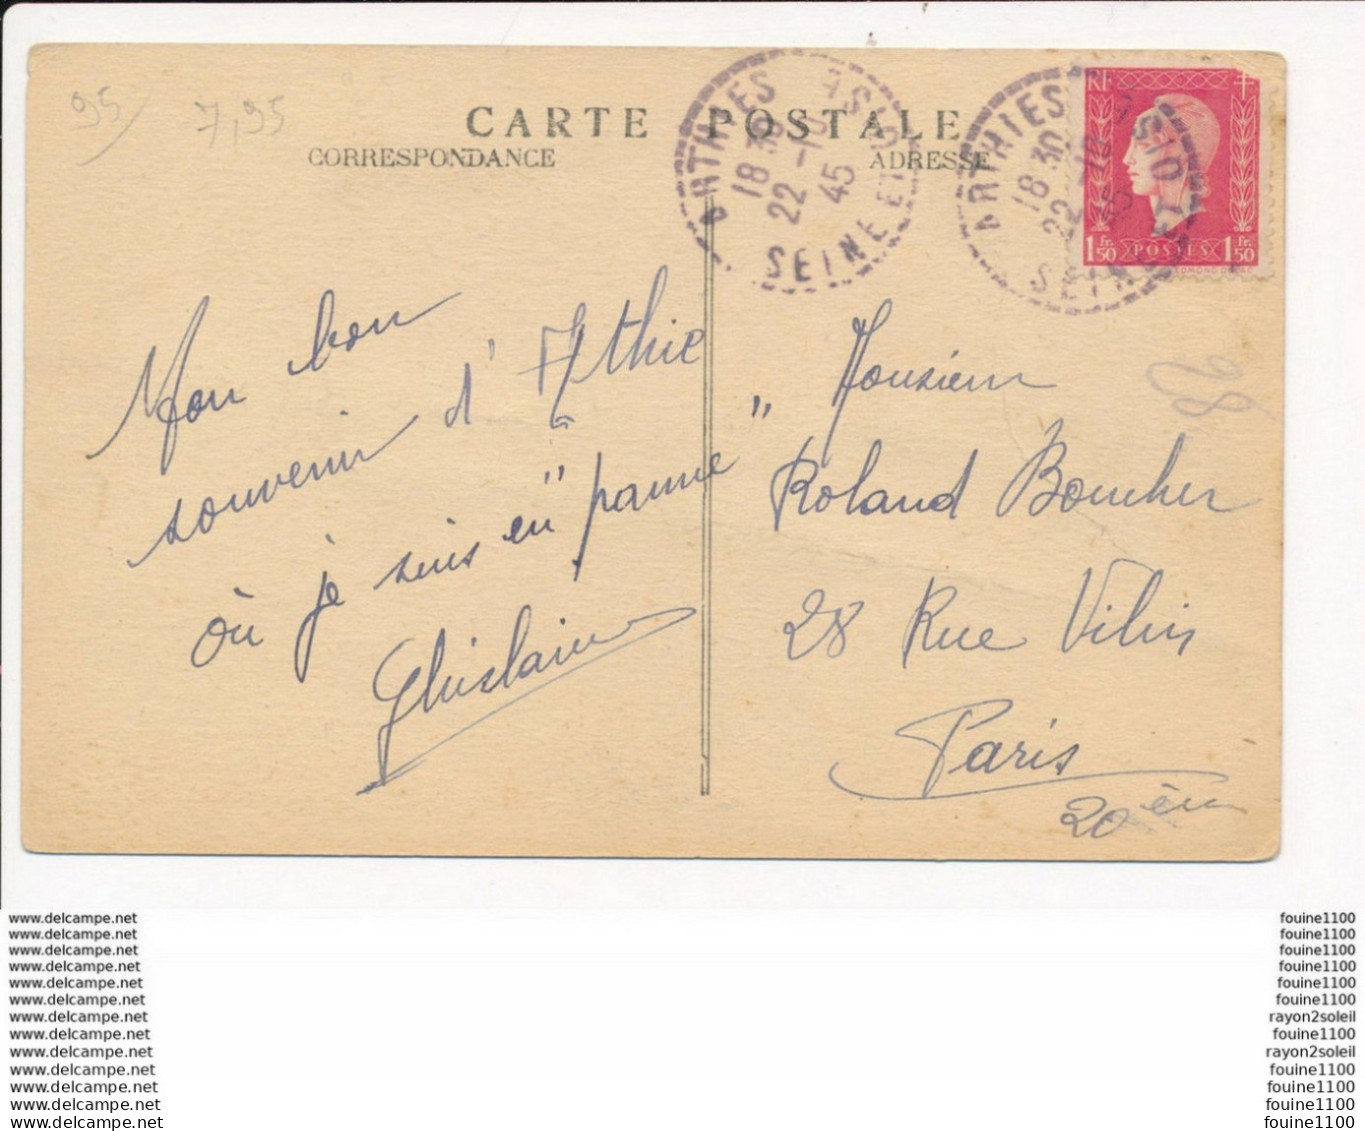 95
7,95
CARTE POSTALE
CORRESPONDANCE
ADRESSE
ARTHIES
18 30
22 -10
45
SEINE ET OISE
ARTHIES
18 30
22 -10
45
SEINE ET OISE
RF
1 Fr 50 POSTES 1 Fr 50
Mon bon
souvenir d'Athie
où je suis en "panne"
Ghislain
28
Monsieur
Roland Boucher
28 Rue Vilin
Paris
20 ème
www.delcampe.net
www.delcampe.net
www.delcampe.net
www.delcampe.net
www.delcampe.net
www.delcampe.net
www.delcampe.net
www.delcampe.net
www.delcampe.net
www.delcampe.net
www.delcampe.net
www.delcampe.net
www.delcampe.net
fouine1100
fouine1100
fouine1100
fouine1100
fouine1100
fouine1100
rayon2soleil
fouine1100
rayon2soleil
fouine1100
fouine1100
fouine1100
fouine1100